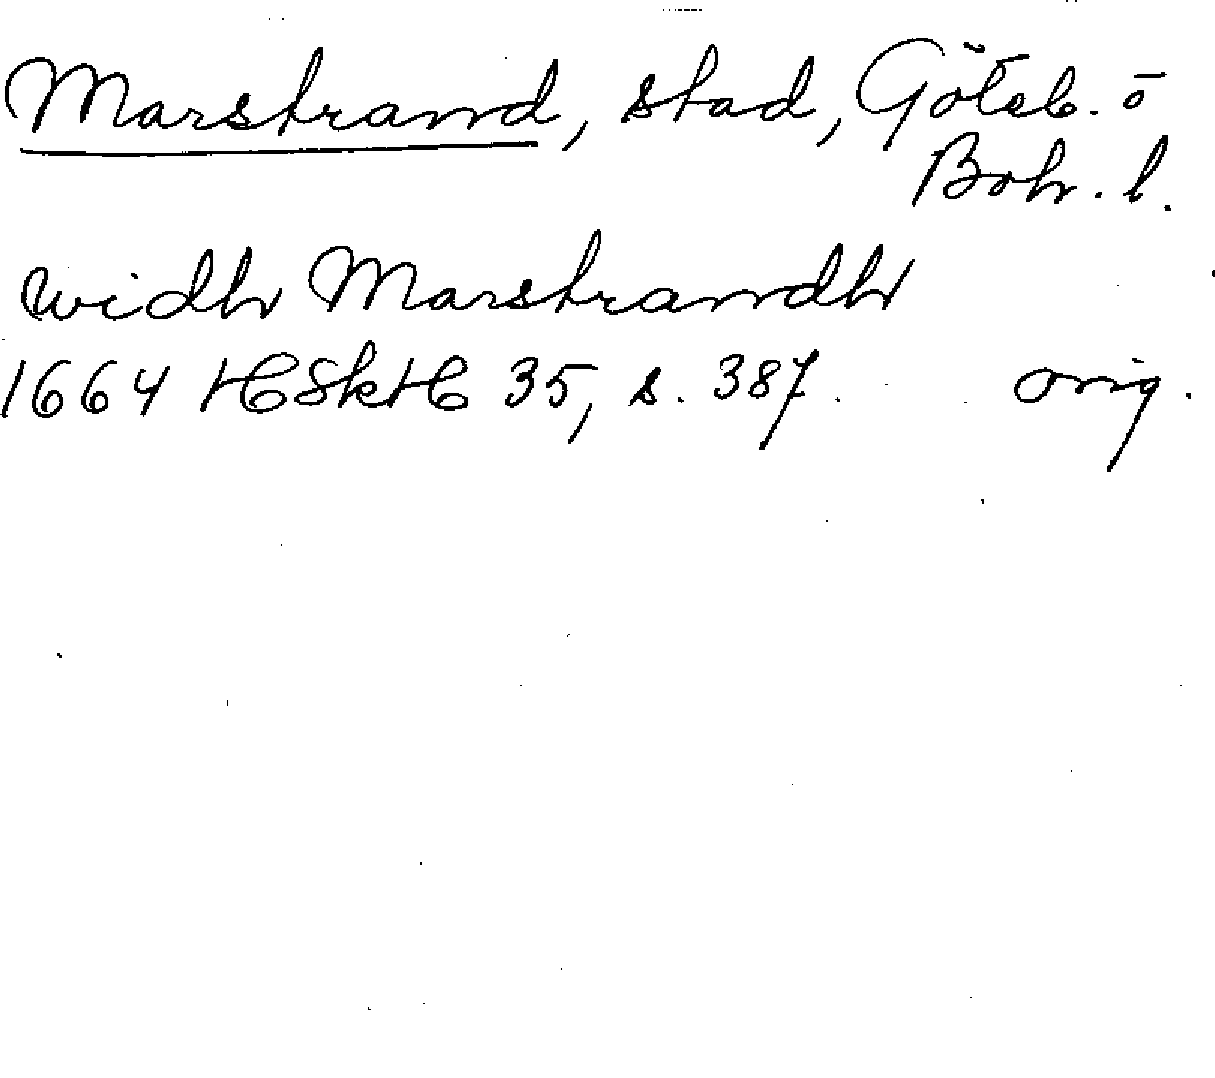 Marstrand, stad, Göteb. o
Boh. l.
widh Marstrandh
1664 HSkH 35, s. 387. orig.